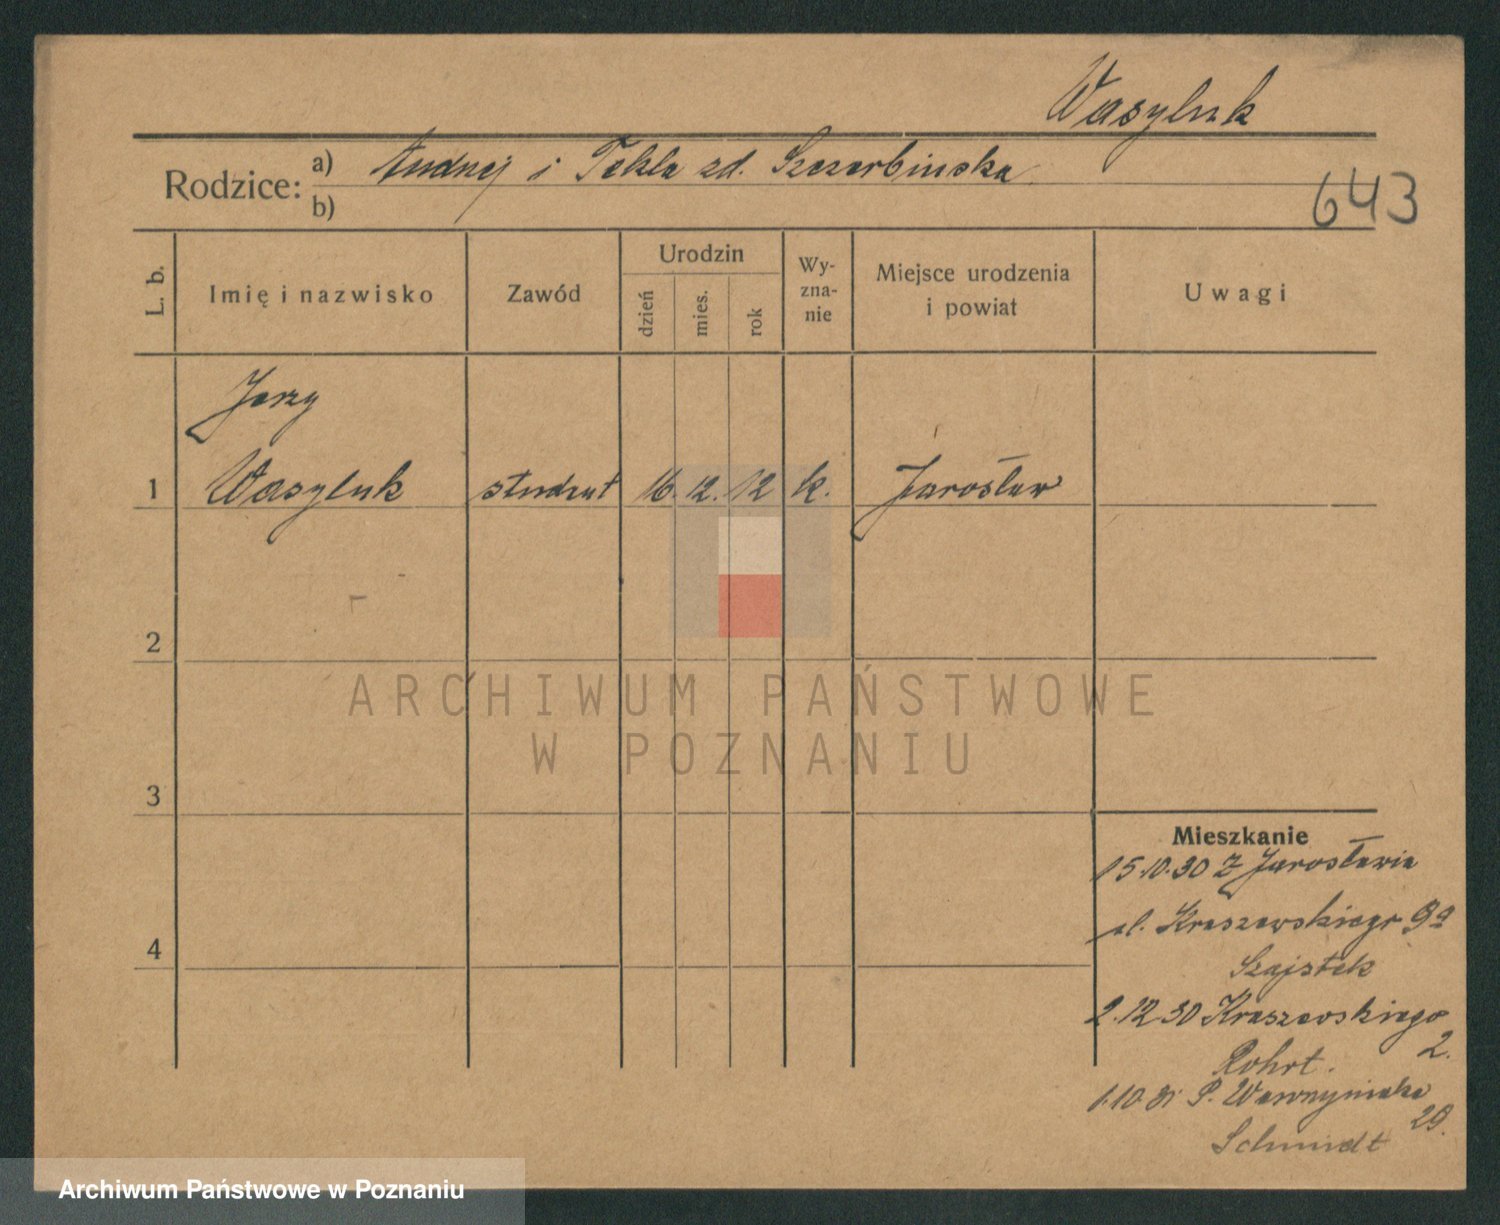 Wasyluk
Rodzice: a) Andrzej i Tekla zd. Szczerbińska
b)
643
L. b.
Imię i nazwisko
Zawód
Urodzin
dzień
mies.
rok
Wy-
zna-
nie
Miejsce urodzenia
i powiat
Uwagi
Jerzy
1 Wasyluk student 16. 12. 12 k. Jarosław
2
3
4
ARCHIWUM PAŃSTWOWE
W POZNANIU
Mieszkanie
15.10.30 z Jarosławia
ul. Kraszewskiego 9a
Szajstek
2.12.30 Kraszewskiego
2.
Rohrt.
1.10.31 P. Wawrzyniaka
29.
Schmidt
Archiwum Państwowe w Poznaniu